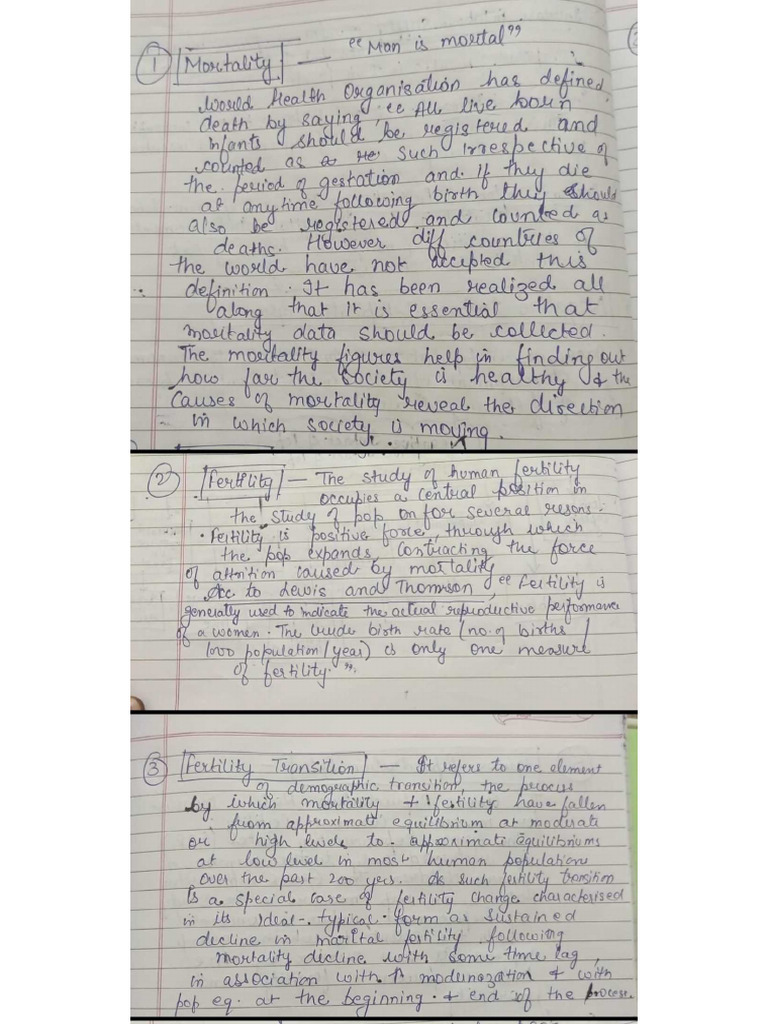 ① Mortality — "Man is mortal"
World Health Organisation has defined
death by saying, "All live born
infants should be registered and
counted as such irrespective of
the period of gestation and if they die
at anytime following birth they should
also be registered and counted as
deaths. However diff countries of
the world have not accepted this
definition. It has been realized all
along that it is essential that
mortality data should be collected.
The mortality figures help in finding out
how far the society is healthy & the
causes of mortality reveal the direction
in which society is moving.
② Fertility — The study of human fertility
occupies a central position in
the study of pop on for several resons.
• Fertility is positive force, through which
the pop expands, contracting the force
of attrition caused by mortality
Acc to Lewis and Thomson, "Fertility is
generally used to indicate the actual reproductive performance
of a women. The crude birth rate (no. of births /
1000 population/year) is only one measure
of fertility."
③ Fertility Transition — It refers to one element
of demographic transition, the process
by which mortality & fertility have fallen
from approximate equilibrium at moderate
or high levels to approximate equilibriums
at low level in most human population
over the past 200 yers. As such fertility transition
is a special case of fertility change characterised
in its ideal-typical form as sustained
decline in marital fertility following
mortality decline with some time lag,
in association with modernazation & with
pop eq. at the beginning & end of the process.